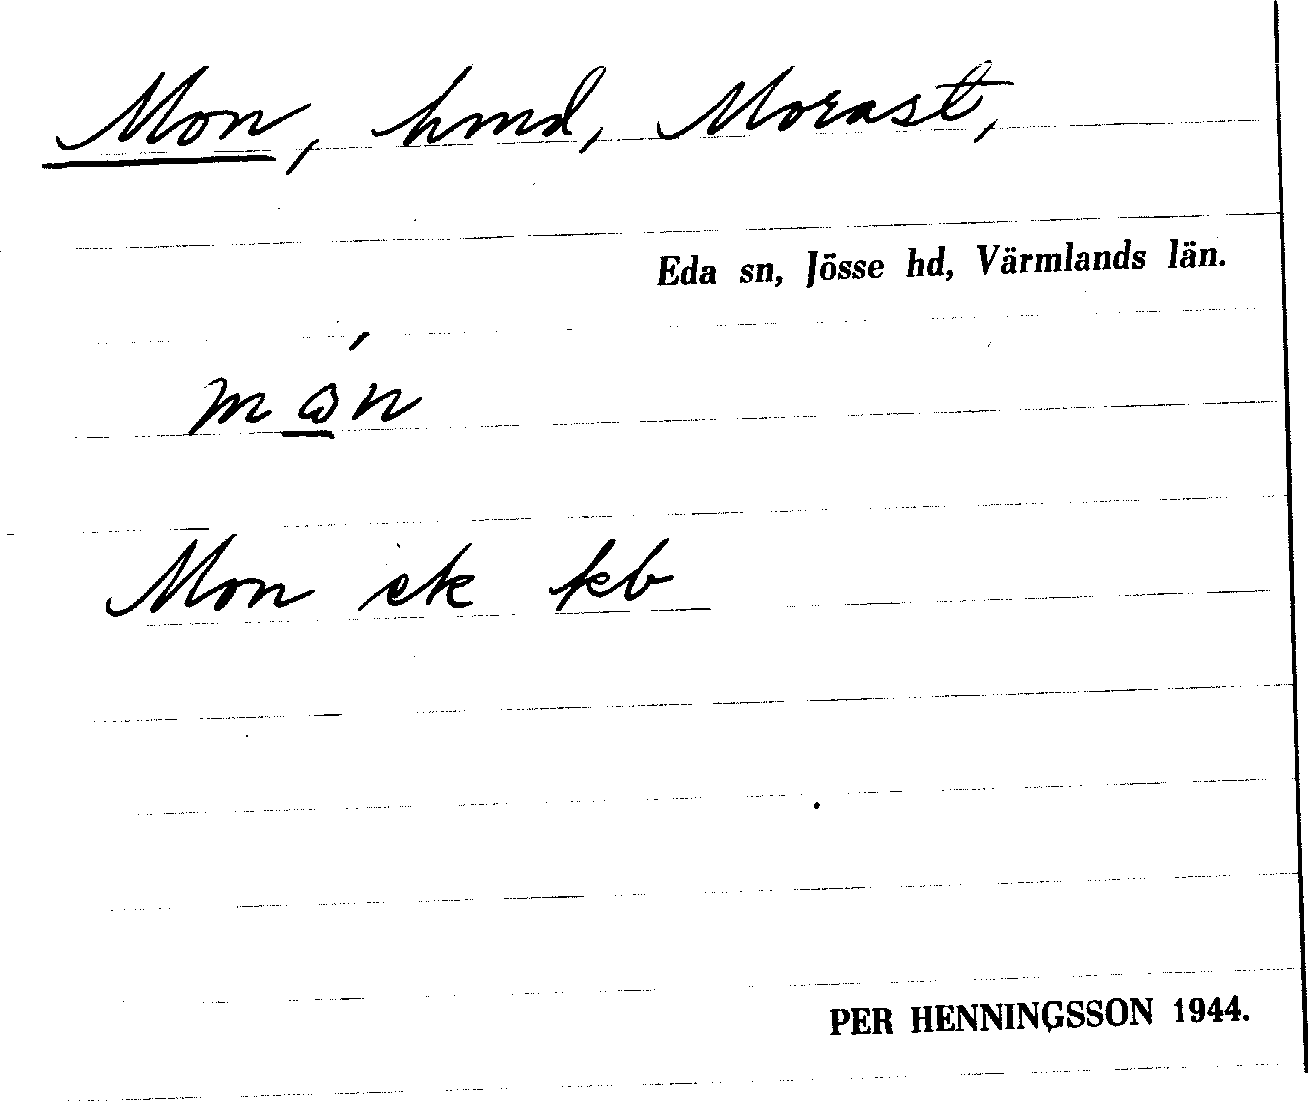 Mon, hmd, Morast,
Eda sn, Jösse hd, Värmlands län.
mo̲n´
Mon ek kb
PER HENNINGSSON 1944.